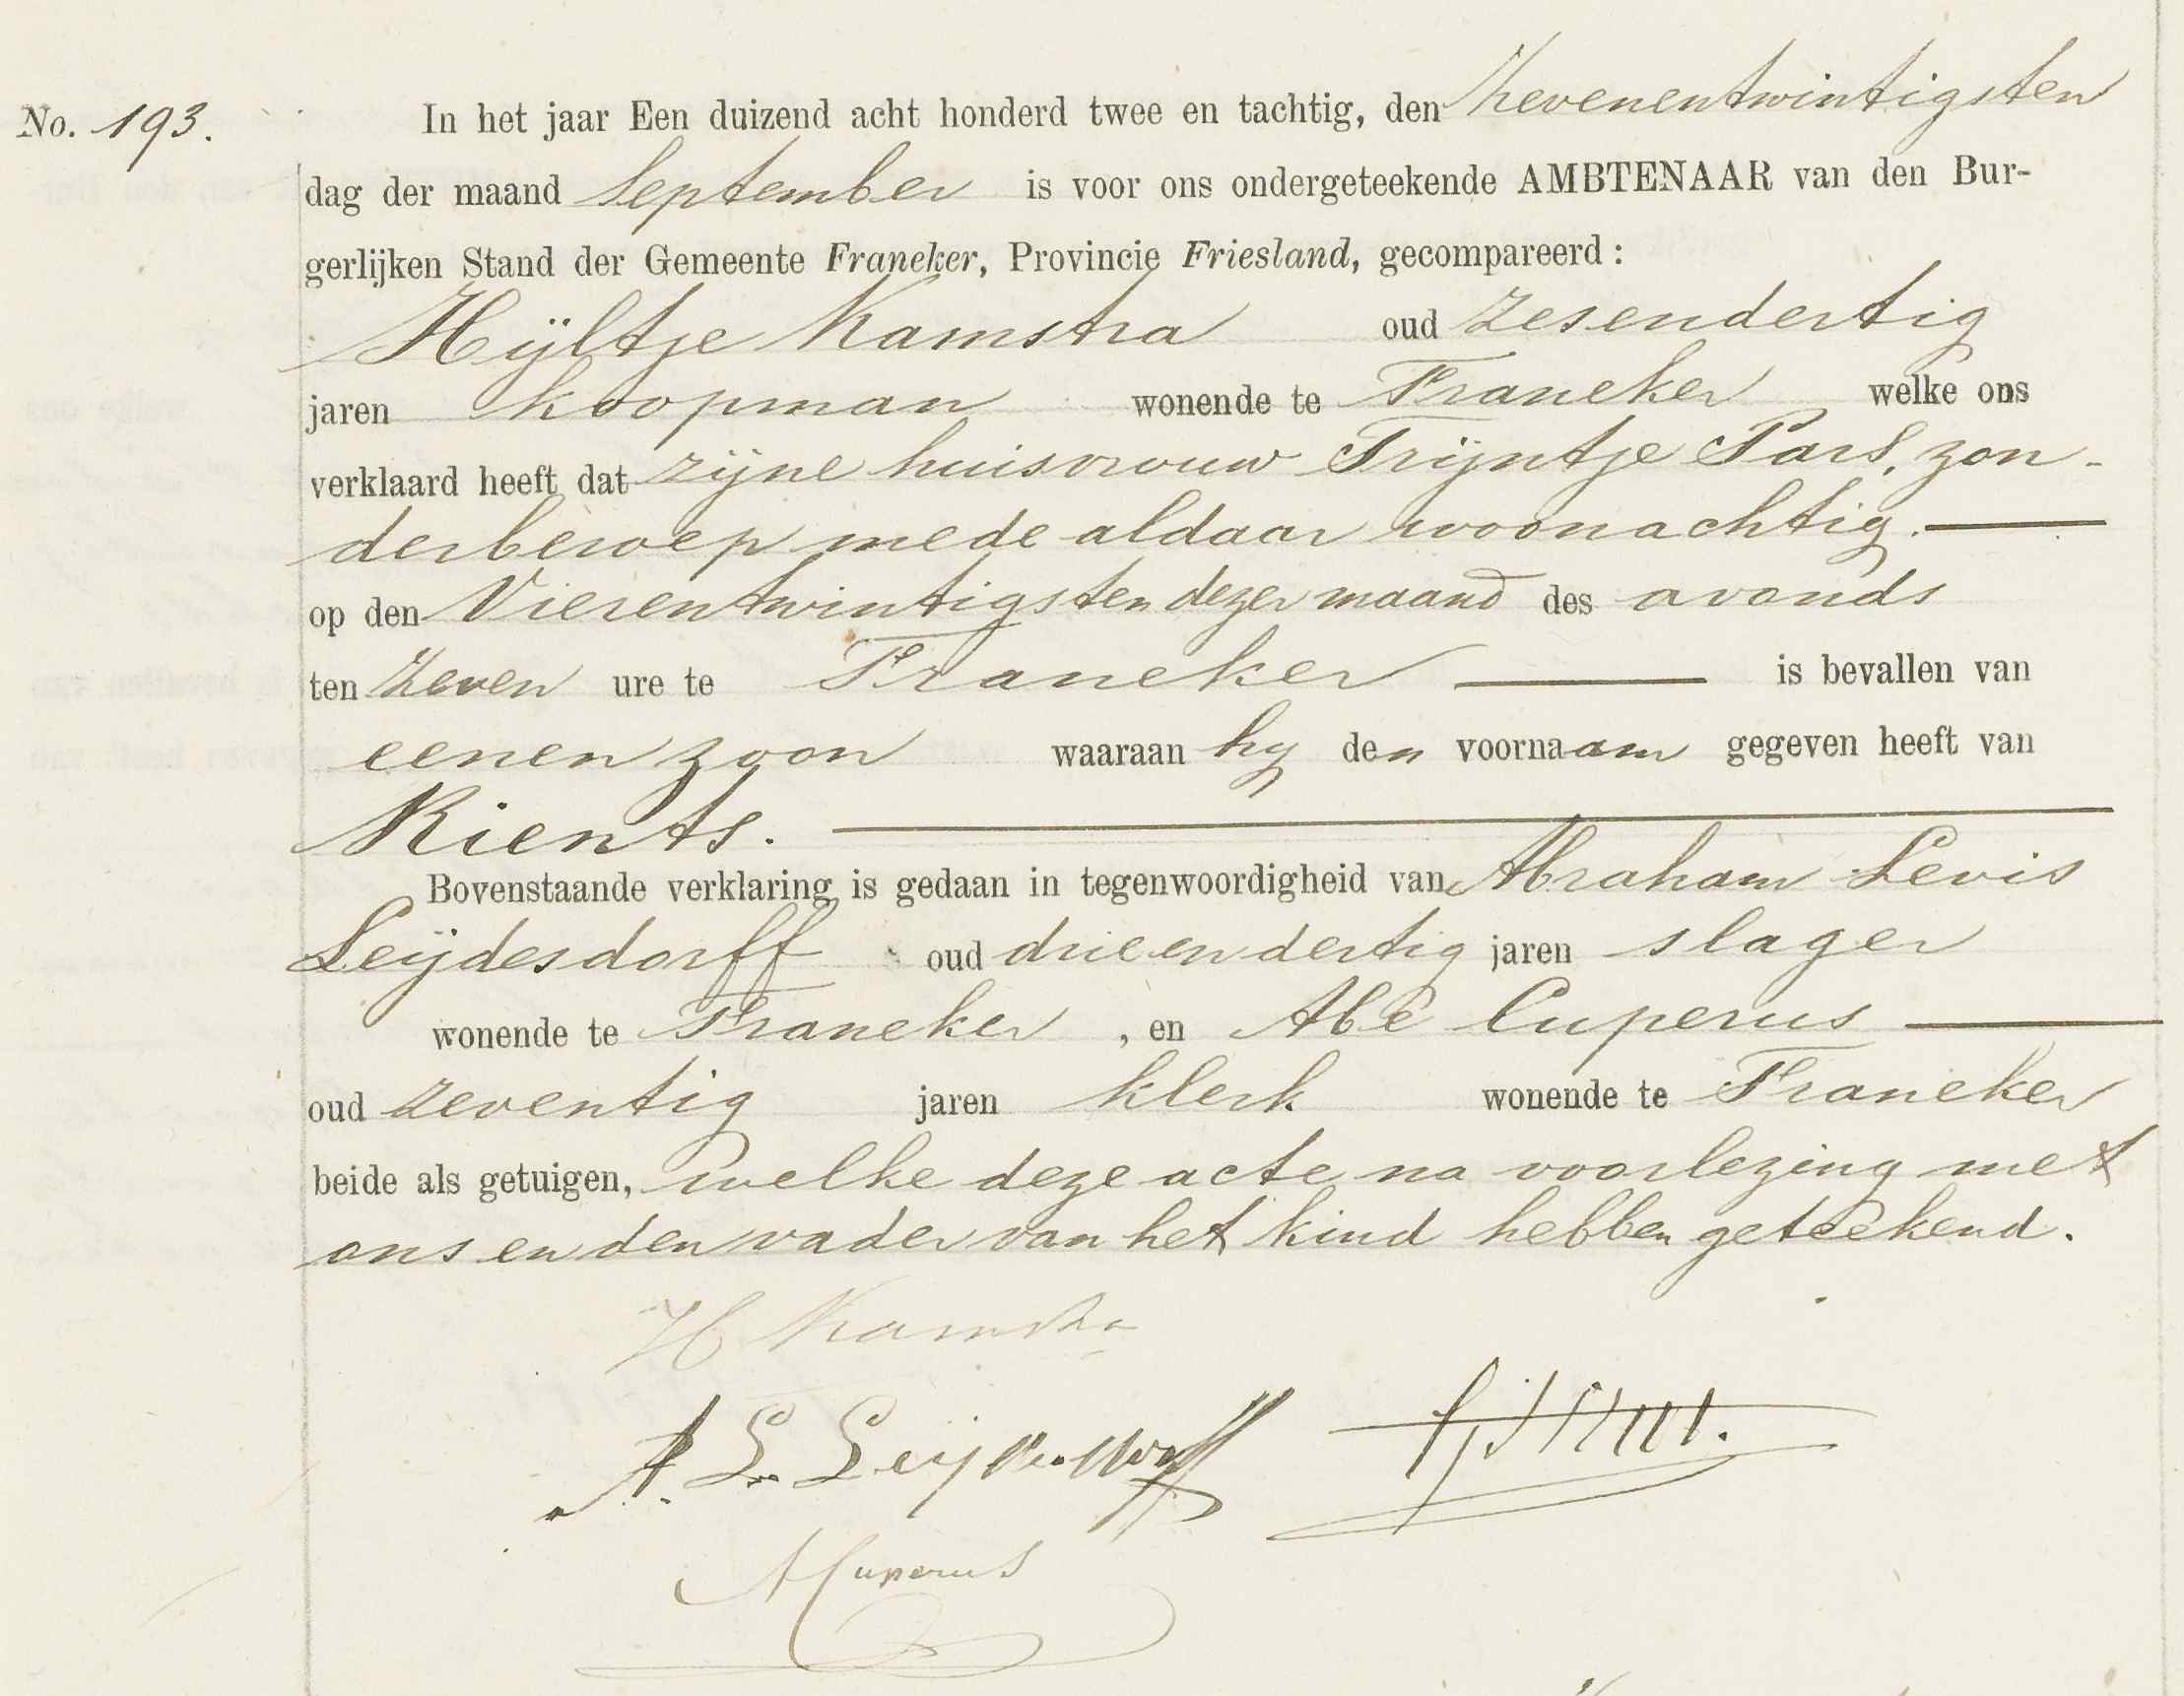 No. 193. In het jaar Een duizend acht honderd twee en tachtig, den Zevenentwintigsten
dag der maand September is voor ons ondergeteekende AMBTENAAR van den Bur-
gerlijken Stand der Gemeente Franeker, Provincie Friesland, gecompareerd :
Hijltje Kamstra oud Zesendertig
jaren koopman wonende te Franeker welke ons
verklaard heeft dat zijne huisvrouw Trijntje Pars, zon-
der beroep mede aldaar woonachtig.
op den Vierentwintigsten dezer maand des avonds
ten Zeven ure te Franeker is bevallen van
eenen zoon waaraan hy den voornaam gegeven heeft van
Rients.
Bovenstaande verklaring is gedaan in tegenwoordigheid van Abraham Levis
Leijdesdorff oud drie en dertig jaren slager
wonende te Franeker , en Abe Cuperus
oud zeventig jaren klerk wonende te Franeker
beide als getuigen, welke deze acte na voorlezing met
ons en den vader van het kind hebben geteekend.
H Kamstra
A. L. Leijdesdorff
A Cuperus